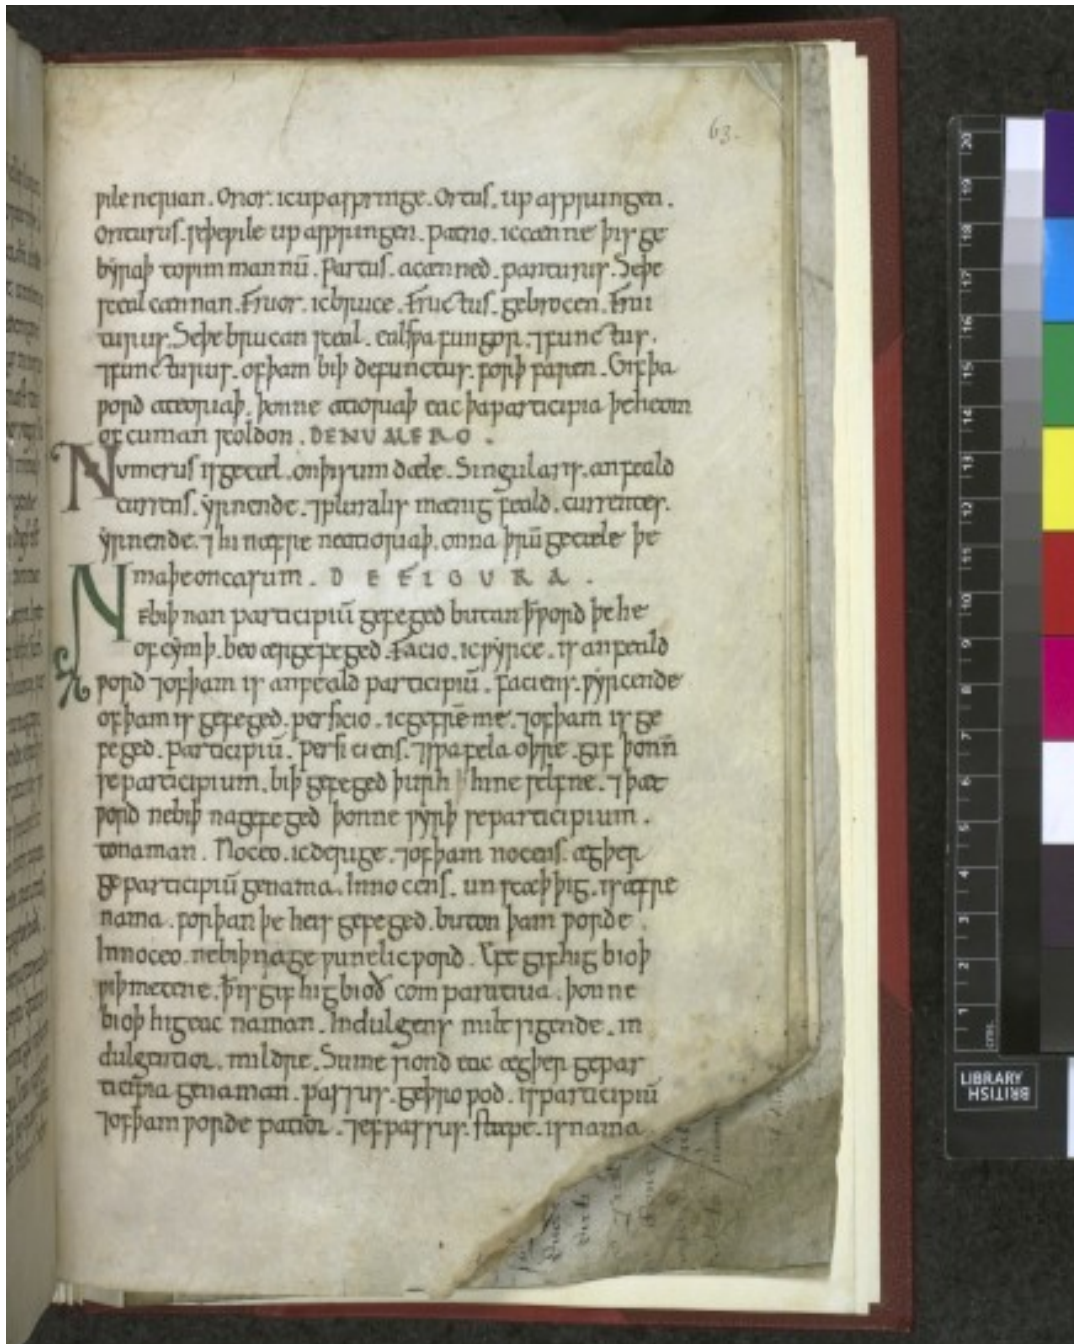 63.
ƿile ncƿan . Orior . ic up aspringe . Ortus . up asprungen .
Oriturus . se þe ƿile up asprungen . Partio . ic cænne þis ge
byraþ to ƿimmannū . Partus . acænned . pariturus . Se þe
sceal cannan . Fruor . ic bruce . Fructus . gebrocen . Frui
turus . Se þe brucan sceal . ealsƿa fungor . ⁊ functus .
⁊ functurus . of þam biþ defunctus . forþ faren . Gif þa
ƿord ateoriaþ . þonne atioriaþ eac þa participia þe heom
of cuman scoldon . DE NUMERO .
Numerus is getæl . on þisum dæle . Singularis . anfeald
currens . yrnende . ⁊ pluralis mænigfeald . currentes .
yrnende . ⁊ hi næfre neatioriaþ . on na þrū getæle þe
ma þe on casum . DE FIGURA .
Ne biþ nan participiū gefeged butan þ ƿord þe he
of cymþ . beo ær gefeged . Facio . ic ƿyrce . is anfeald
ƿord ⁊ of þam is anfeald participiū . faciens . ƿyrcende
of þam is gefeged . perficio . ic gefremme . ⁊ of þam is ge
feged . participiū . perficiens . ⁊ sƿa fela oþre . gif þonn̄
se participium . biþ gefeged þurh hine selfne . ⁊ þæt
ƿord ne biþ na gefeged þonne ƿyrþ se participium .
to naman . Noceo . ic derige . ⁊ of þam nocens . ægþer
ge participiū ge nama . Innocens . unscæþþig . is æfre
nama . forþan þe he is gefeged . buton þam ƿorde .
Innoceo . ne biþ na geƿunelic ƿord . Eft gif hig bioþ
ƿiþmetene . þ is gif hig bioð comparatiua . þonne
bioþ hig eac naman . Indulgens miltsigende . in
dulgentior . mildre . Sume siond eac ægþer ge par
ticipia ge naman . passus . geþroƿod . is participiū
⁊ of þam ƿorde patior . ⁊ ef passus . stæpe . is nama
LIBRARY
BRITISH
cms. 1 2 3 4 5 6 7 8 9 10 11 12 13 14 15 16 17 18 19 20